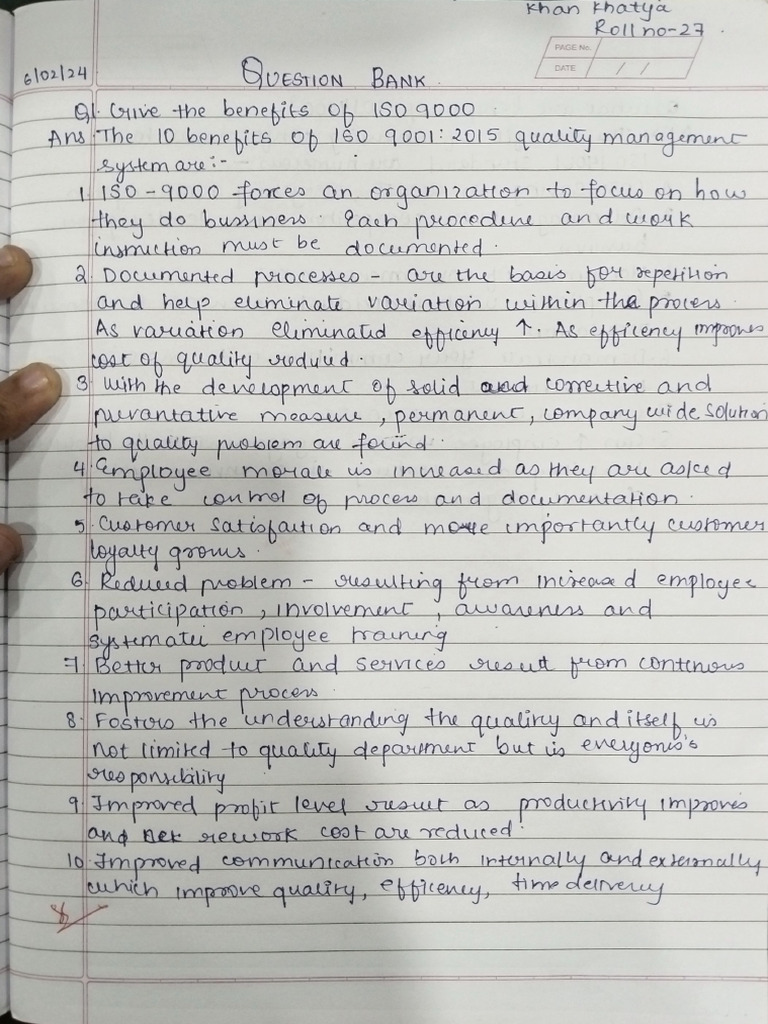 Khan Khatya
Roll no-27.
PAGE No.
DATE / /
6/02/24
QUESTION BANK
Q1. Give the benefits of ISO 9000
Ans The 10 benefits of ISO 9001:2015 quality management
system are:-
1. ISO-9000 forces an organization to focus on how
they do bussiners. Each procedure and work
instruction must be documented.
2. Documented processes - are the basis for repetition
and help eliminate variation within the process.
As variation eliminated efficency ↑. As efficency improves
cost of quality reduced.
3 with the development of solid and corrective and
prevantative measure, permanent, company wide solution
to quality problem are found.
4. Employee morale is increased as they are asked
to take control of process and documentation.
5. Customer satisfaction and more importantly customer
loyalty grows.
6. Reduced problem - resulting from increased employee
participation, involvement, awareness and
systematic employee training
7. Better product and services result from continous
improvement process.
8. Fosters the understanding the quality and itself is
not limited to quality department but is everyone's
responsibility
9. Improved profit level result as productivity improves
and rework cost are reduced.
10. Improved communication both internally and externally
which improve quality, efficency, time delivery